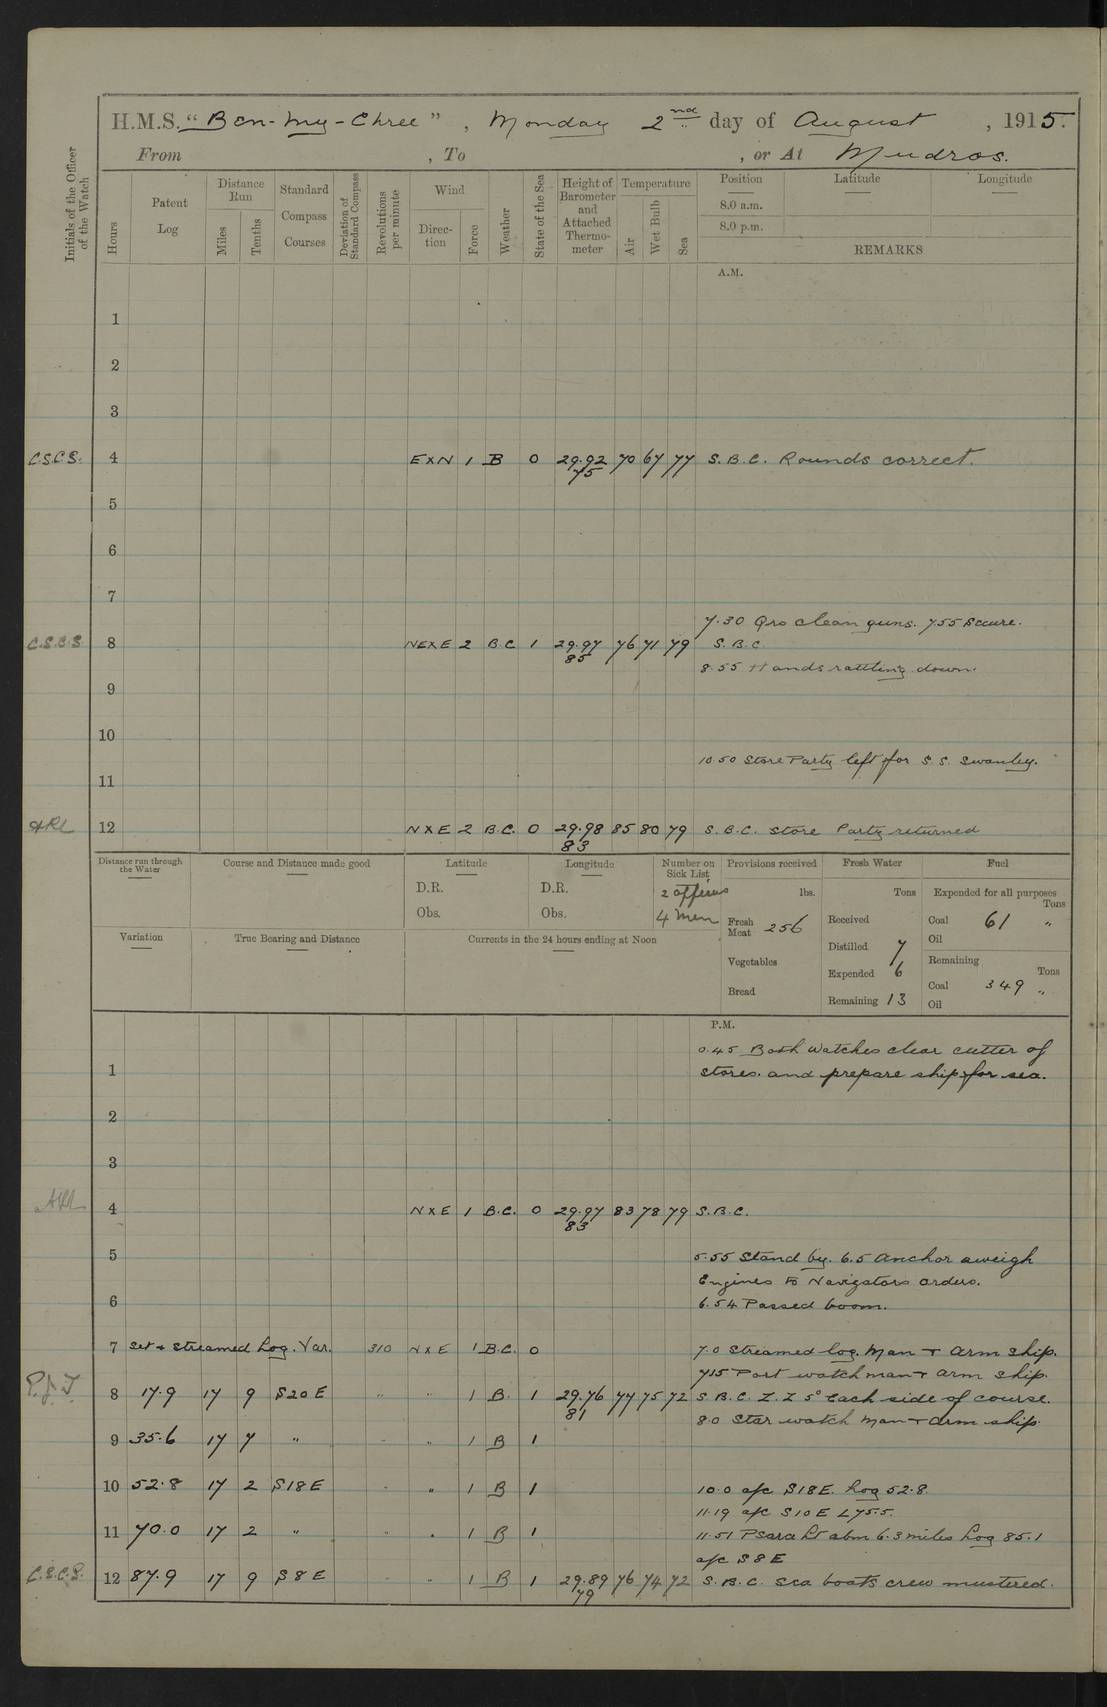 H.M.S. "Ben-my-Chree", Monday 2nd day of August, 1915.
From , To , or At Mudros.
Initials of the Officer of the Watch
Hours
Patent Log
Distance Run
Miles
Tenths
Standard Compass Courses
Deviation of Standard Compass
Revolutions per minute
Wind
Direction
Force
Weather
State of the Sea
Height of Barometer and Attached Thermometer
Temperature
Air
Wet Bulb
Sea
Position Latitude Longitude
8.0 a.m.
8.0 p.m.
REMARKS
A.M.
1
2
3
C.S.C.S. 4 EXN 1 B 0 29.92 70 67 77 S.B.C. Rounds correct.
75
5
6
7
7.30 Qrs clean guns. 755 Secure.
C.S.C.S. 8 NEXE 2 B.C 1 29.97 76 71 79 S.B.C
85
8.55 Hands rattling down.
9
10
10.50 Store Party left for S.S. Swanley.
11
12 NXE 2 B.C. 0 29.98 85 80 79 S.B.C. Store Party returned
83
Distance run through the Water
Course and Distance made good
Latitude
D.R.
Obs.
Longitude
D.R.
Obs.
Number on Sick List
2 officers
4 men
Variation
True Bearing and Distance
Currents in the 24 hours ending at Noon
Provisions received
lbs.
Fresh Meat 256
Vegetables
Bread
Fresh Water
Tons
Received
Distilled 7
Expended 6
Remaining 13
Fuel
Expended for all purposes
Tons
Coal 61 "
Oil
Remaining
Tons
Coal 349 "
Oil
P.M.
0.45 Both watches clear cutter of
1 stores. and prepare ship for sea.
2
3
4 NXE 1 B.C. 0 29.97 83 78 79 S.B.C.
83
5 5.55 Stand by. 6.5 Anchor aweigh
Engines to Navigators orders.
6 6.54 Passed boom.
7 Set & streamed Log. Var. 310 NXE 1 B.C. 0 7.0 Streamed log. Man & arm ship.
715 Port watch man & arm ship.
P.J.T. 8 17.9 17 9 S20E " " 1 B. 1 29.76 77 75 72 S.B.C. Z.Z 5° Each side of course.
81
8.0 Star watch man & arm ship.
9 35.6 17 7 " " " 1 B 1
10 52.8 17 2 S18E " " 1 B 1 10.0 a/c S18E. Log 52.8.
11.19 a/c S10E L75.5.
11 70.0 17 2 " " " 1 B 1 11.51 Psara Lt abm 6.3 miles Log 85.1
a/c S8E
C.S.C.S. 12 87.9 17 9 S8E " " 1 B 1 29.89 76 74 72 S.B.C. Sea boats crew mustered.
79